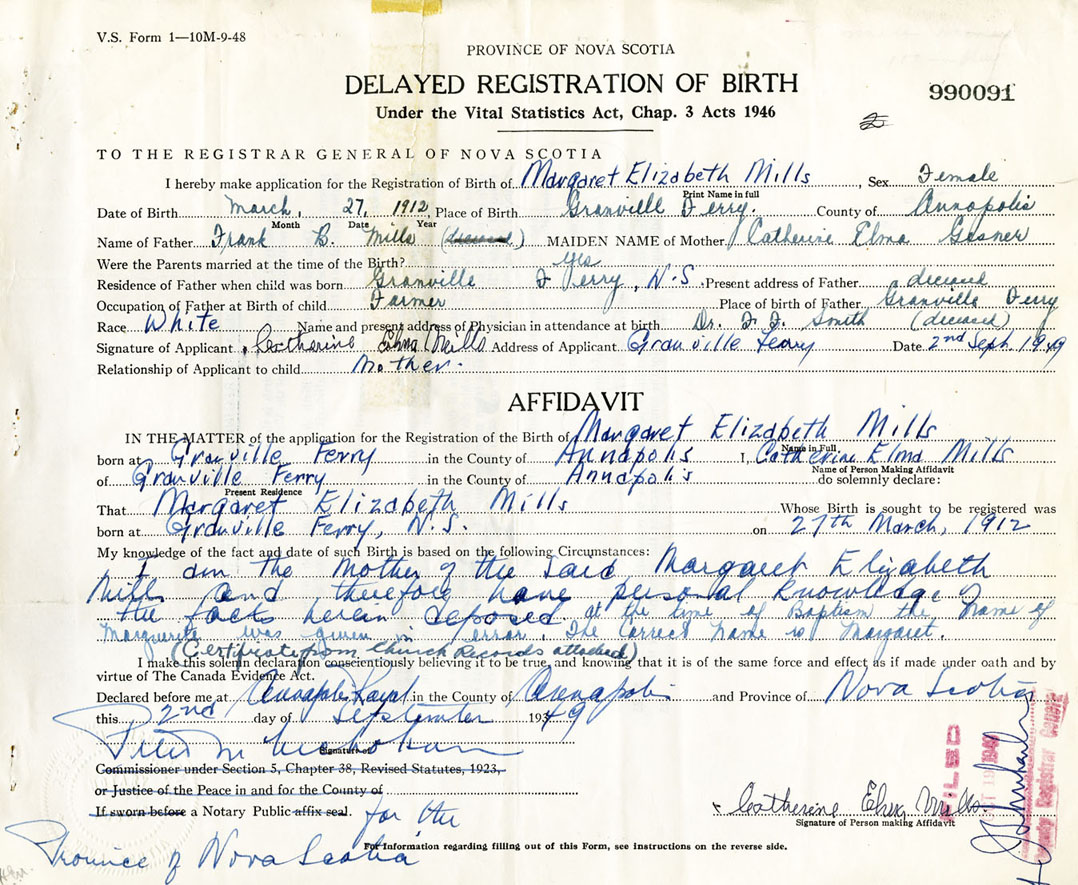 V.S. Form 1—10M-9-48
PROVINCE OF NOVA SCOTIA
DELAYED REGISTRATION OF BIRTH
990091
Under the Vital Statistics Act, Chap. 3 Acts 1946
TO THE REGISTRAR GENERAL OF NOVA SCOTIA
I hereby make application for the Registration of Birth of Margaret Elizabeth Mills, Sex Female
Print Name in full
Date of Birth March, 27, 1912, Place of Birth Granville Ferry. County of Annapolis
Month Date Year
Name of Father Frank B. Mills (deceased) MAIDEN NAME of Mother Catherine Elma Gesner
Were the Parents married at the time of the Birth? yes
Residence of Father when child was born Granville Ferry, N.S. Present address of Father deceased
Occupation of Father at Birth of child Farmer Place of birth of Father Granville Ferry
Race White Name and present address of Physician in attendance at birth Dr. F. F. Smith (deceased)
Signature of Applicant Catherine Elma Mills Address of Applicant Granville Ferry Date 2nd Sept. 1949
Relationship of Applicant to child Mother.
AFFIDAVIT
IN THE MATTER of the application for the Registration of the Birth of Margaret Elizabeth Mills
Name in Full
born at Granville Ferry in the County of Annapolis I, Catherine Elma Mills
Name of Person Making Affidavit
of Granville Ferry in the County of Annapolis do solemnly declare:
Present Residence
That Margaret Elizabeth Mills Whose Birth is sought to be registered was
born at Granville Ferry, N.S. on 27th March, 1912
My knowledge of the fact and date of such Birth is based on the following Circumstances:
I am the Mother of the said Margaret Elizabeth
Mills and therefore have personal knowledge of
the facts herein deposed at the time of Baptism the name of
Marguerite was given in error. The Correct name is Margaret.
(Certificate from Church Records attached)
I make this solemn declaration conscientiously believing it to be true, and knowing that it is of the same force and effect as if made under oath and by
virtue of The Canada Evidence Act.
Declared before me at Annapolis Royal in the County of Annapolis and Province of Nova Scotia
this 2nd day of September 1949
Signature of
Commissioner under Section 5, Chapter 38, Revised Statutes, 1923,
or Justice of the Peace in and for the County of
If sworn before a Notary Public affix seal. for the
Province of Nova Scotia
Catherine Elma Mills
Signature of Person making Affidavit
For Information regarding filling out of this Form, see instructions on the reverse side.
FILED
Deputy Registrar General